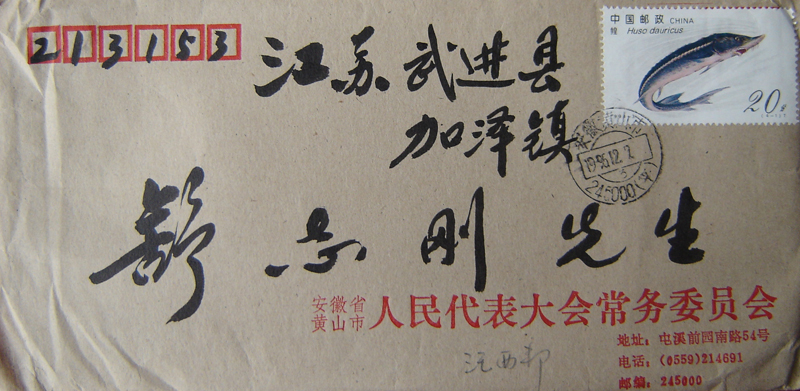 213153
中国邮政 CHINA
鳇 Huso dauricus
20分
江苏武进县
加泽镇
安徽黄山市
1995.12.2
245000(平)
舒志刚先生
安徽省
黄山市 人民代表大会常务委员会
地址：屯溪前园南路54号
电话：(0559)214691
邮编：245000
汪西邦